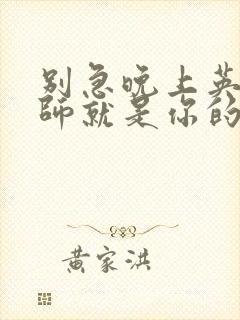 别急晚上英
师就是你的
黄家洪